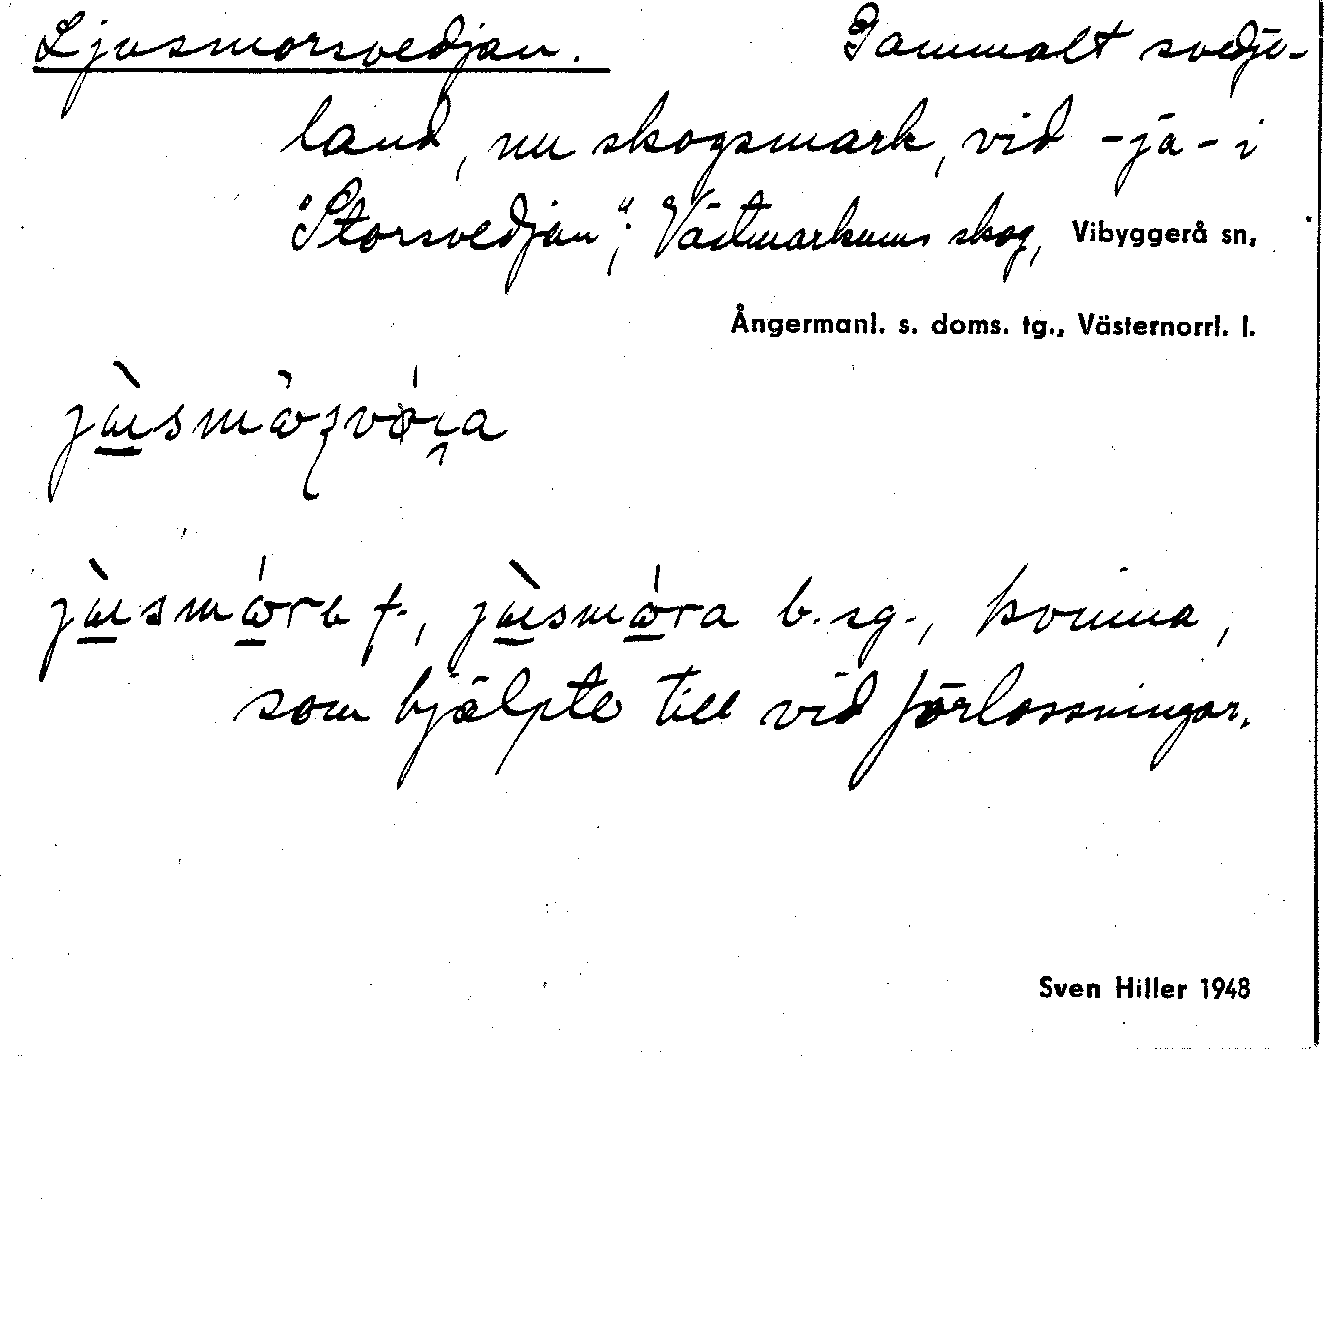 Ljusmorsvedjan. Gammalt svedje-
land, nu skogsmark, vid -ja- i
"Storsvedjan"; Västmarkums skog, Vibyggerå sn,
Ångermanl. s. doms. tg., Västernorrl. l.
f., b. sg., kvinna,
som hjälpte till vid förlossningar.
Sven Hiller 1948